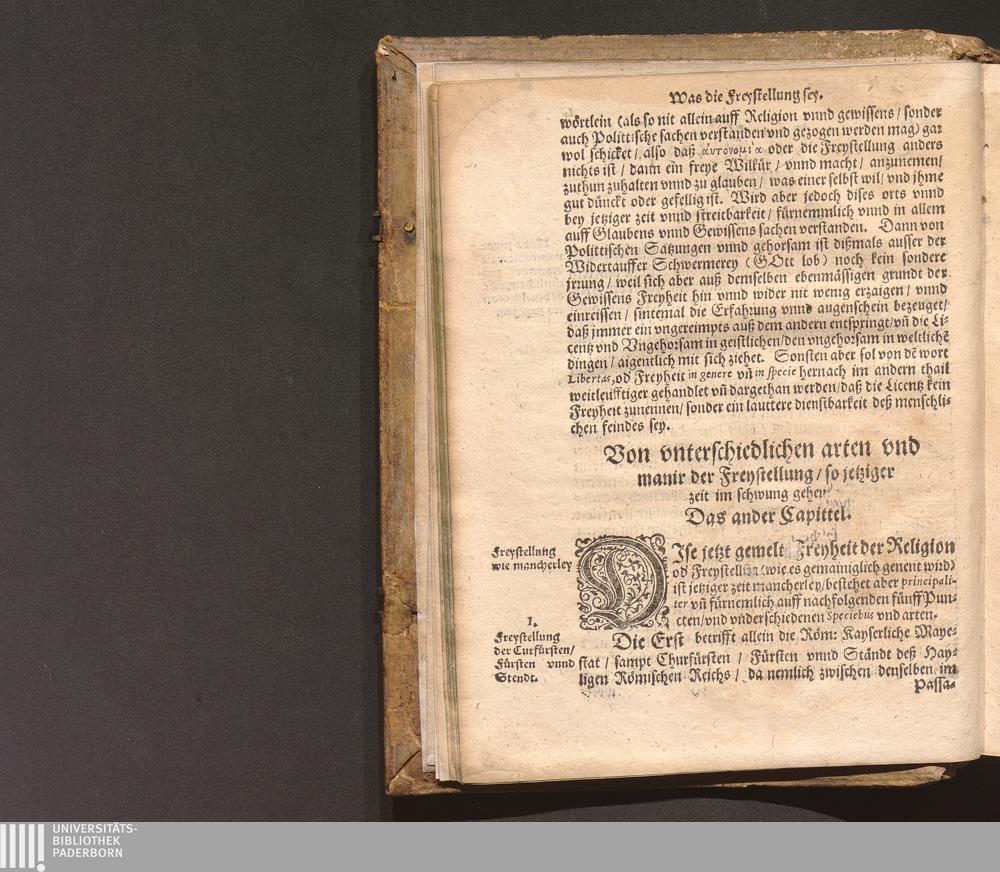 Was die Freystellung sey.
wörtlein (als so nit allein auff Religion vnnd gewissens / sonder
auch Polittische sachen verstanden vnd gezogen werden mag) gar
wol schicket / also daß αὐτονομία oder die Freystellung anders
nichts ist / dann ein freye Wilkür / vnnd macht / anzunemen /
zuthun zuhalten vnnd zu glauben / was einer selbst wil / vnd jhme
gut dünckt oder gefellig ist. Wird aber jedoch dises orts vnnd
bey jetziger zeit vnnd streitbarkeit / fürnemmlich vnnd in allem
auff Glaubens vnnd Gewissens sachen verstanden. Dann von
Polittischen Satzungen vnnd gehorsam ist dißmals ausser der
Widertauffer Schwermerey (GOtt lob) noch kein sondere
jrrung / weil sich aber auß demselben ebenmässigen grundt der
Gewissens Freyheit hin vnnd wider nit wenig erzaigen / vnnd
einreissen / sintemal die Erfahrung vnnd augenschein bezeuget /
daß jmmer ein vngereimpts auß dem andern entspringt / vñ die Li-
centz vnd Vngehorsam in geistlichen / den vngehorsam in weltlichẽ
dingen / aigentlich mit sich ziehet. Sonsten aber sol von dẽ wort
Libertas, od Freyheit in genere vñ in specie hernach im andern thail
weitleufftiger gehandlet vñ dargethan werden / daß die Licentz kein
Freyheit zunennen / sonder ein lauttere dienstbarkeit deß menschli-
chen feindes sey.
Von vnterschiedlichen arten vnd
manir der Freystellung / so jetziger
zeit im schwung gehen
Das ander Capittel.
Freystellung
wie mancherley
DIse jetzt gemelt Freyheit der Religion
od Freystellūn (wie es gemainiglich genent wird)
ist jetziger zeit mancherley / bestehet aber principali-
ter vñ fürnemlich auff nachfolgenden fünff Pun-
cten / vnd vnderschiedenen Speciebus vnd arten.
1.
Freystellung
der Curfürsten /
Fürsten vnnd
Stendt.
Die Erst betrifft allein die Röm: Kayserliche Maye-
stat / sampt Churfürsten / Fürsten vnnd Ständt deß Hay-
ligen Römischen Reichs / da nemlich zwischen denselben im
Passa-
UNIVERSITÄTS-
BIBLIOTHEK
PADERBORN